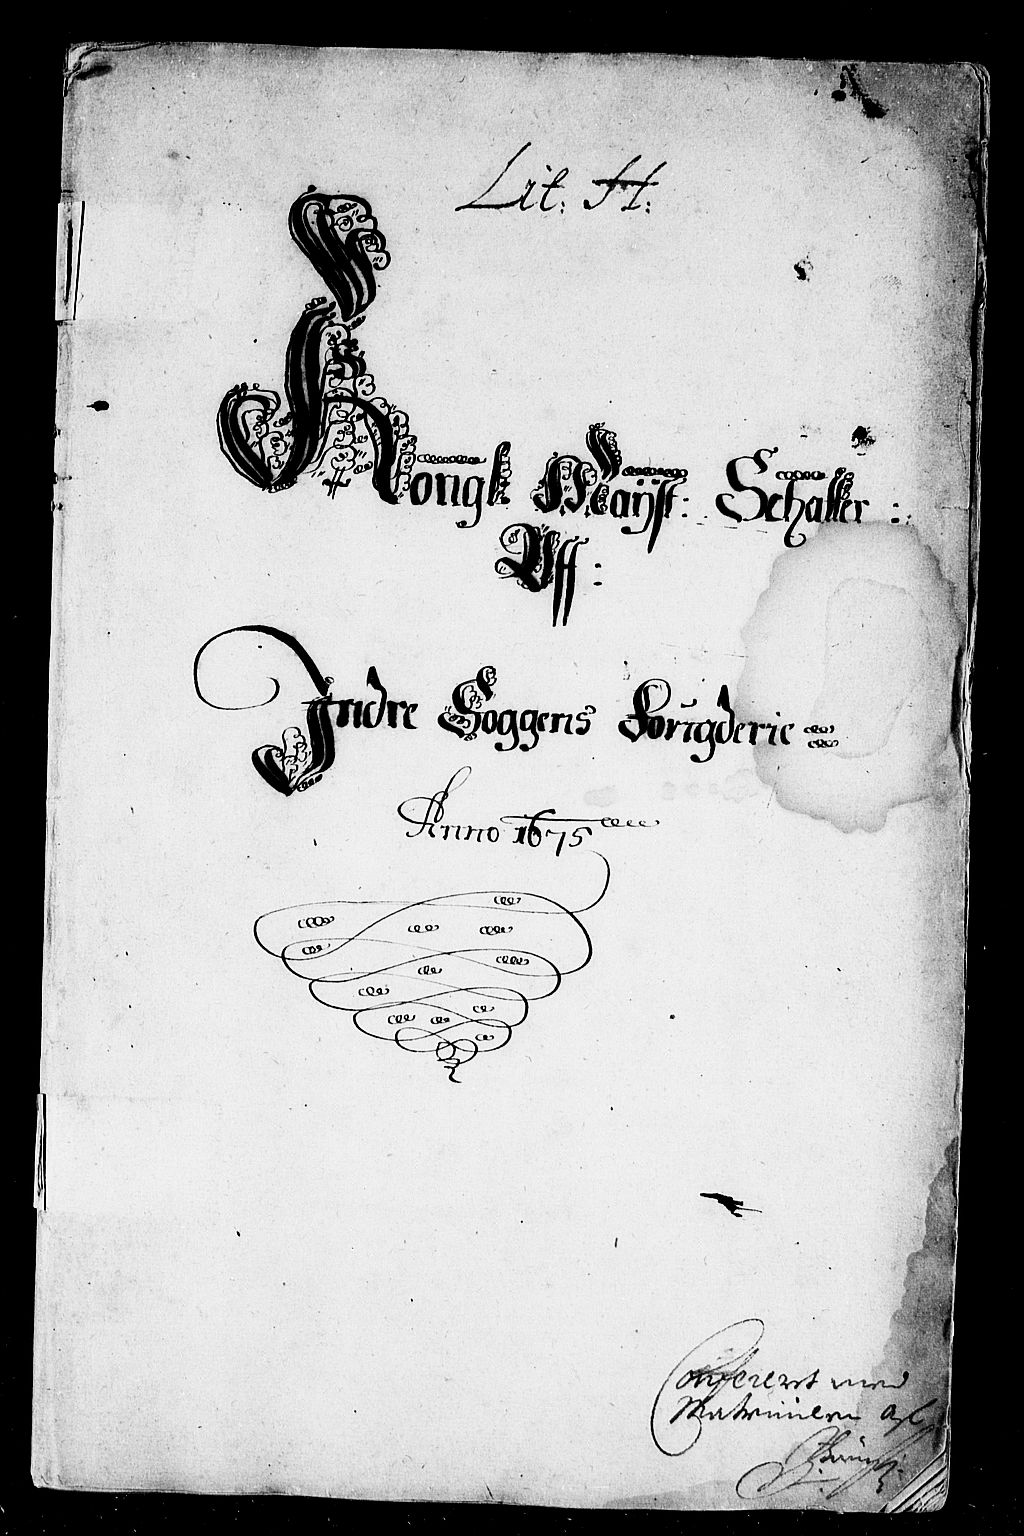 Lit: H:
Kongl Mayst: Schatter :
Aff :
Indre Soggens Sorigderie
Anno 1675
Confereret med
Matriculen